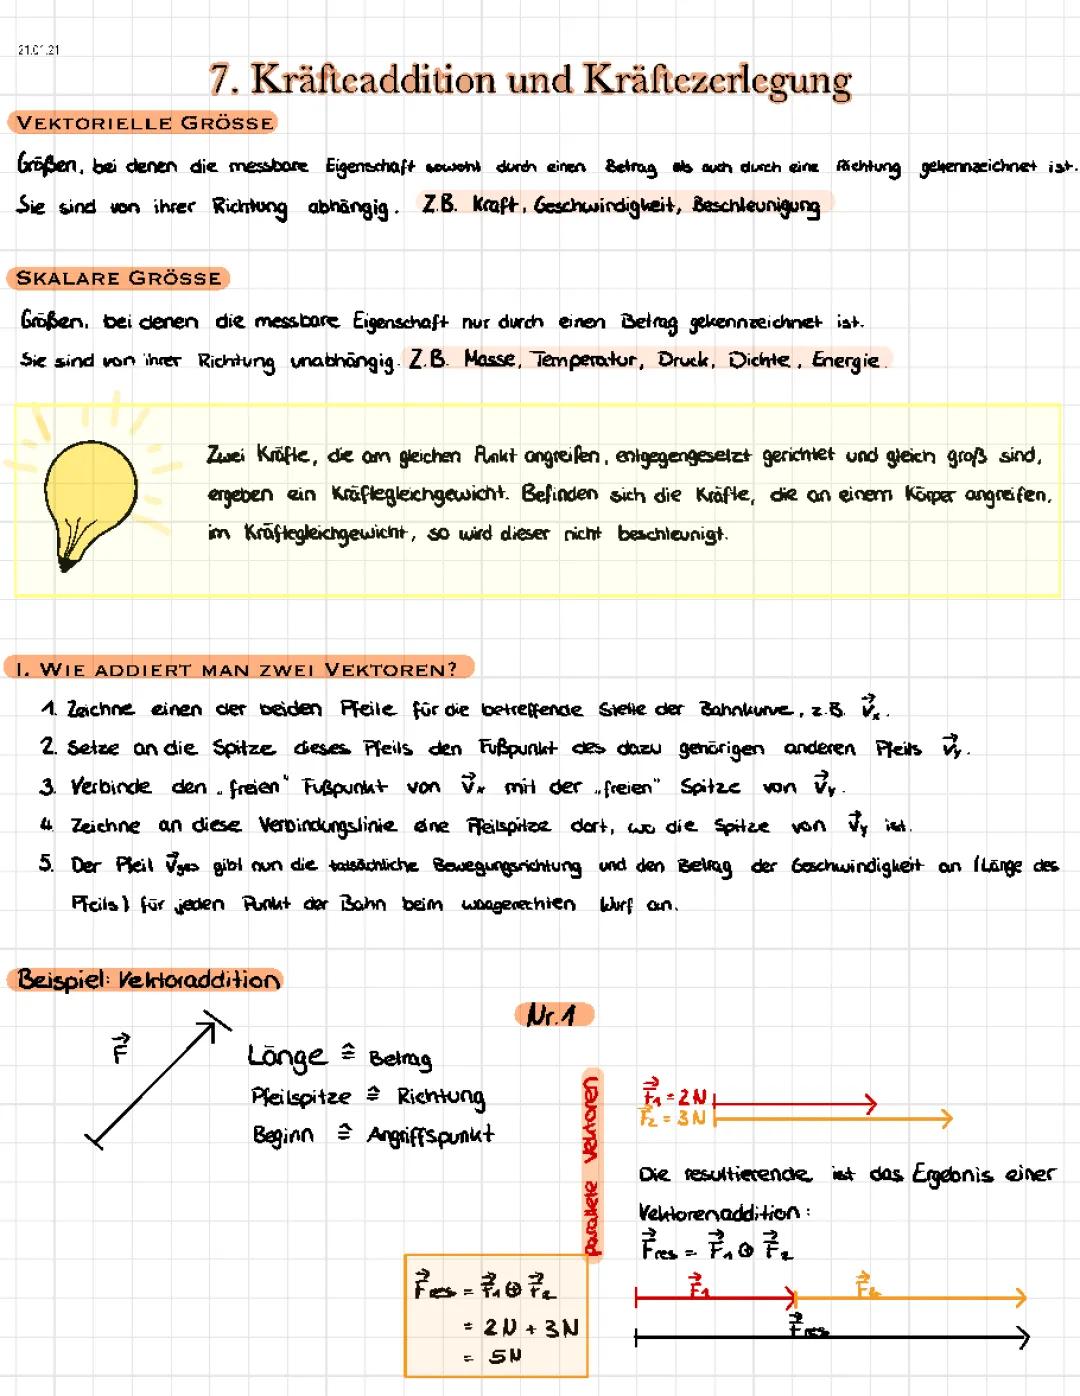 21.01.21
7. Kräfteaddition und Kräftezerlegung
VEKTORIELLE GRÖSSE
Größen, bei denen die messbare Eigenschaft sowohl durch einen Betrag als auch durch eine Richtung gekennzeichnet ist.
Sie sind von ihrer Richtung abhängig. Z.B. Kraft, Geschwindigkeit, Beschleunigung
SKALARE GRÖSSE
Größen, bei denen die messbare Eigenschaft nur durch einen Betrag gekennzeichnet ist.
Sie sind von ihrer Richtung unabhängig. Z.B. Masse, Temperatur, Druck, Dichte, Energie.
Zwei Kräfte, die am gleichen Punkt angreifen, entgegengesetzt gerichtet und gleich groß sind,
ergeben ein Kräftegleichgewicht. Befinden sich die Kräfte, die an einem Körper angreifen,
im Kräftegleichgewicht, so wird dieser nicht beschleunigt.
1. WIE ADDIERT MAN ZWEI VEKTOREN?
1. Zeichne einen der beiden Pfeile für die betreffende Stelle der Bahnkurve, z.B. v⃗ₓ.
2. Setze an die Spitze dieses Pfeils den Fußpunkt des dazu gehörigen anderen Pfeils v⃗y.
3. Verbinde den „freien" Fußpunkt von v⃗ₓ mit der „freien" Spitze von v⃗y.
4. Zeichne an diese Verbindungslinie eine Pfeilspitze dort, wo die Spitze von v⃗y ist.
5. Der Pfeil v⃗ges gibt nun die tatsächliche Bewegungsrichtung und den Betrag der Geschwindigkeit an (Länge des
Pfeils) für jeden Punkt der Bahn beim waagerechten Wurf an.
Beispiel: Vektoraddition
F⃗
Länge ≙ Betrag
Pfeilspitze ≙ Richtung
Beginn ≙ Angriffspunkt
Nr.1
parallele Vektoren
F⃗₁ = 2N
F⃗₂ = 3N
Die resultierende ist das Ergebnis einer
Vektorenaddition:
F⃗res = F⃗₁ ⊕ F⃗₂
F⃗₁ F⃗₂
F⃗res
F⃗res = F⃗₁ ⊕ F⃗₂
= 2N + 3N
= 5N